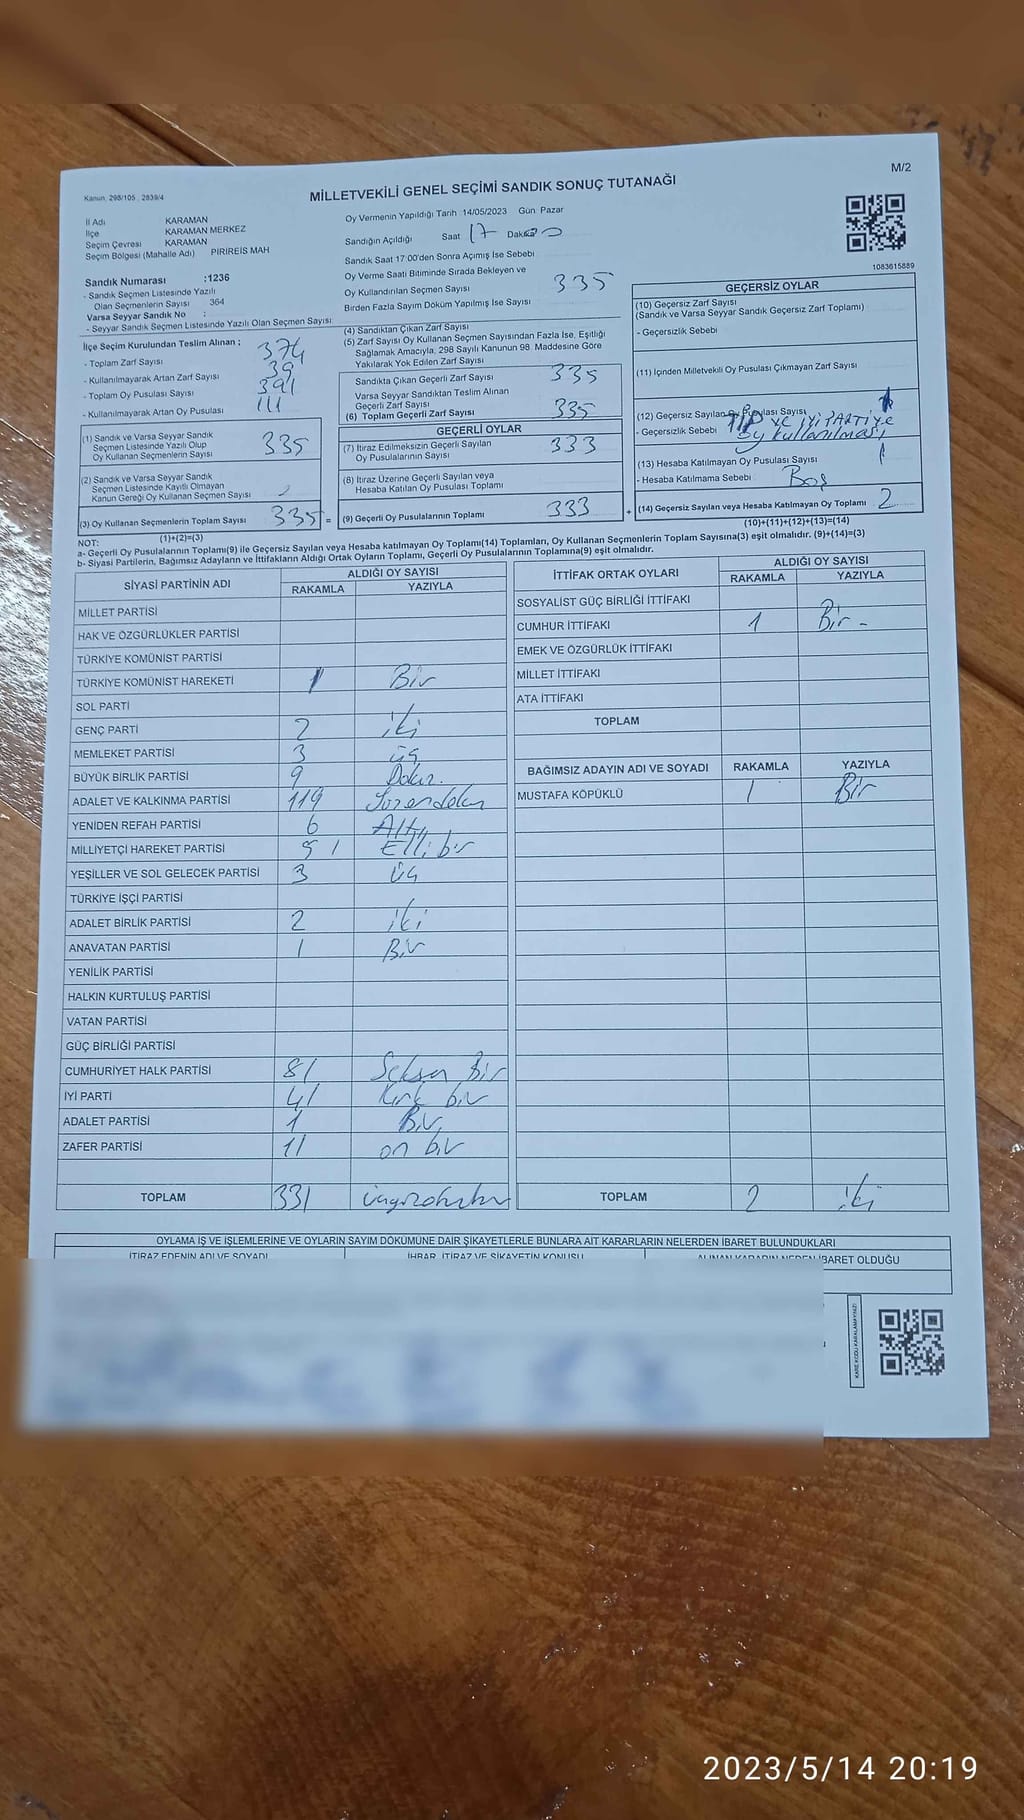 M/2
Kanun: 298/105 , 2839/4
MİLLETVEKİLİ GENEL SEÇİMİ SANDIK SONUÇ TUTANAĞI
İl Adı KARAMAN
İlçe KARAMAN MERKEZ
Seçim Çevresi KARAMAN
Seçim Bölgesi (Mahalle Adı) PIRIREIS MAH
Sandık Numarası :1236
- Sandık Seçmen Listesinde Yazılı
Olan Seçmenlerin Sayısı 364
Varsa Seyyar Sandık No :
- Seyyar Sandık Seçmen Listesinde Yazılı Olan Seçmen Sayısı:
İlçe Seçim Kurulundan Teslim Alınan ;
- Toplam Zarf Sayısı 374
- Kullanılmayarak Artan Zarf Sayısı 39
- Toplam Oy Pusulası Sayısı 391
- Kullanılmayarak Artan Oy Pusulası 111
(1) Sandık ve Varsa Seyyar Sandık
Seçmen Listesinde Yazılı Olup
Oy Kullanan Seçmenlerin Sayısı 335
(2) Sandık ve Varsa Seyyar Sandık
Seçmen Listesinde Kayıtlı Olmayan
Kanun Gereği Oy Kullanan Seçmen Sayısı
(3) Oy Kullanan Seçmenlerin Toplam Sayısı 335 =
(1)+(2)=(3)
Oy Vermenin Yapıldığı Tarih 14/05/2023 Gün Pazar
Sandığın Açıldığı Saat 17 Dakika
Sandık Saat 17:00'den Sonra Açımış İse Sebebi
Oy Verme Saati Bitiminde Sırada Bekleyen ve
Oy Kullandırılan Seçmen Sayısı 335
Birden Fazla Sayım Döküm Yapılmış İse Sayısı
(4) Sandıktan Çıkan Zarf Sayısı
(5) Zarf Sayısı Oy Kullanan Seçmen Sayısından Fazla İse, Eşitliği
Sağlamak Amacıyla, 298 Sayılı Kanunun 98. Maddesine Göre
Yakılarak Yok Edilen Zarf Sayısı
Sandıkta Çıkan Geçerli Zarf Sayısı 335
Varsa Seyyar Sandıktan Teslim Alınan
Geçerli Zarf Sayısı
(6) Toplam Geçerli Zarf Sayısı 335
GEÇERLİ OYLAR
(7) İtiraz Edilmeksizin Geçerli Sayılan
Oy Pusulalarının Sayısı 333
(8) İtiraz Üzerine Geçerli Sayılan veya
Hesaba Katılan Oy Pusulası Toplamı
(9) Geçerli Oy Pusulalarının Toplamı 333 +
1083615889
GEÇERSİZ OYLAR
(10) Geçersiz Zarf Sayısı
(Sandık ve Varsa Seyyar Sandık Geçersiz Zarf Toplamı)
- Geçersizlik Sebebi
(11) İçinden Milletvekili Oy Pusulası Çıkmayan Zarf Sayısı
(12) Geçersiz Sayılan Oy Pusulası Sayısı 1
- Geçersizlik Sebebi TİP VE İYİ PARTİYE
oy kullanılması
(13) Hesaba Katılmayan Oy Pusulası Sayısı 1
- Hesaba Katılmama Sebebi Boş
(14) Geçersiz Sayılan veya Hesaba Katılmayan Oy Toplamı 2
(10)+(11)+(12)+(13)=(14)
NOT:
a- Geçerli Oy Pusulalarının Toplamı(9) ile Geçersiz Sayılan veya Hesaba katılmayan Oy Toplamı(14) Toplamları, Oy Kullanan Seçmenlerin Toplam Sayısına(3) eşit olmalıdır. (9)+(14)=(3)
b- Siyasi Partilerin, Bağımsız Adayların ve İttifakların Aldığı Ortak Oyların Toplamı, Geçerli Oy Pusulalarının Toplamına(9) eşit olmalıdır.
SİYASİ PARTİNİN ADI ALDIĞI OY SAYISI
RAKAMLA YAZIYLA
MİLLET PARTİSİ
HAK VE ÖZGÜRLÜKLER PARTİSİ
TÜRKİYE KOMÜNİST PARTİSİ
TÜRKİYE KOMÜNİST HAREKETİ 1 Bir
SOL PARTİ
GENÇ PARTİ 2 iki
MEMLEKET PARTİSİ 3 üç
BÜYÜK BİRLİK PARTİSİ 9 Dokuz
ADALET VE KALKINMA PARTİSİ 119
YENİDEN REFAH PARTİSİ 6 Altı
MİLLİYETÇİ HAREKET PARTİSİ 51 Elli bir
YEŞİLLER VE SOL GELECEK PARTİSİ 3 üç
TÜRKİYE İŞÇİ PARTİSİ
ADALET BİRLİK PARTİSİ 2 iki
ANAVATAN PARTİSİ 1 Bir
YENİLİK PARTİSİ
HALKIN KURTULUŞ PARTİSİ
VATAN PARTİSİ
GÜÇ BİRLİĞİ PARTİSİ
CUMHURİYET HALK PARTİSİ 81 Seksen Bir
İYİ PARTİ 41 Kırk bir
ADALET PARTİSİ 1 Bir
ZAFER PARTİSİ 11 on bir
TOPLAM 331
İTTİFAK ORTAK OYLARI ALDIĞI OY SAYISI
RAKAMLA YAZIYLA
SOSYALİST GÜÇ BİRLİĞİ İTTİFAKI
CUMHUR İTTİFAKI 1 Bir -
EMEK VE ÖZGÜRLÜK İTTİFAKI
MİLLET İTTİFAKI
ATA İTTİFAKI
TOPLAM
BAĞIMSIZ ADAYIN ADI VE SOYADI RAKAMLA YAZIYLA
MUSTAFA KÖPÜKLÜ 1 Bir
TOPLAM 2 iki
OYLAMA İŞ VE İŞLEMLERİNE VE OYLARIN SAYIM DÖKÜMÜNE DAİR ŞİKAYETLERLE BUNLARA AİT KARARLARIN NELERDEN İBARET BULUNDUKLARI
İTİRAZ EDENİN ADI VE SOYADI İHBAR, İTİRAZ VE ŞİKAYETİN KONUSU ALINAN KARARIN NEDEN İBARET OLDUĞU
KARE KODU KARALAMAYINIZ!
2023/5/14 20:19